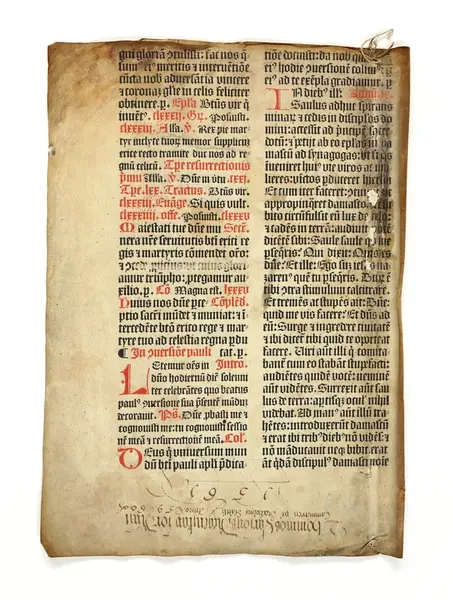 gni gloriā ꝯtulisti: fac nos q̄
sum⁹ ei⁹ meritis et interuētiōe
cūcta nob̄ aduersātia vincere
et coronaꝫ gl̄ie in celis feliciter
obtinere. p. Epl̄a Btūs vir q̄
inuēt⁹. clxxxij. Gr. Posuisti.
clxxxij. All̄a. V. Rex pie mar
tyr inclyte tuoꝝ memor suppliciū
erīte recto tramite duc nos ad re
gna celicū. Tp̄e resurrectionis
pmū All̄a. V. Dn̄e in v̄tu. cxj.
Tp̄e. lxx. Tractus. Btūs vir.
clxxxiij. Euāge. Si quis vult.
clxxxiiij. offe. Posuisti. clxxxv
Maiestati tue dn̄e mu Secr̄.
nera nr̄e seruitutis bt̄i erici re
gis et martyris cōmendet or̄o:
triumpho: ꝓtegamur au
xilio. p. Cō Magna est. lxxxv
Munius nos dn̄e ꝑce Cōplēd.
ptio sacri mūdet & muniat: & in
tercedēte bt̄o erico rege & mar
tyre tuo ad celestia regna p̄du
In ꝯuersiōe pauli cat. p.
Letemur oēs in Intro.
dn̄o hodiernū diē solem
iter celebrātes quo beatus
paul⁹ ꝯuersione sua p̄sentē mūdū
decorauit. Ps. Dn̄e ꝓbasti me &
cognouisti me: tu cognouisti sessio
nē meā & resurrectionē meā. Col̄.
Deus qui vniuersum mun
dū bt̄i pauli apl̄i p̄dica
tiōe docuisti: da nob̄ que
ei⁹ hodie ꝯuersionē colim⁹
ei⁹ ad te exēpla gradiamur. p.
In dieb⁹ ill̄:
Saulus adhuc spirans
minarum & cedis in discip̄los do
mini: accessit ad pn̄cipē sacer
dotū: & petijt ab eo epl̄as in da
mascū ad synagogas: vt si qs̄
inueniret hui⁹ vie viros ac mu
lieres: victos pduceret in hierl̄m
Et cum iter faceret: ꝯtigit vt
appropinqret damasco: & su
bito circūfulsit eū lux de celo:
& cadēs in terram: audiuit vocē
dicētē sibi: Saule saule qd me
p̄seqris? Qui dixit: Quis es
dn̄e? Et ille: Ego sū iesus na
zaren⁹ quē tu p̄seqris. Durū ē
tibi ꝯtra stimulum calcitrare.
Et tremēs ac stupēs ait: Dn̄e:
quid me vis facere? Et dn̄s ad
eū: Surge & ingredere ciuitatē
& ibi dicet̄ tibi quid te oporteat
facere. Uiri aūt illi q̄ comita
bant̄ cum eo stabāt stupefacti:
audiētes quidē vocē: neminē
aūt vidētes. Surrexit aūt sau
lus de terra: aptisqꝫ ocul⁹ nihil
videbat. Ad man⁹ aūt illū tra
hētes: introduxerūt damascū
& erat ibi trib⁹ dieb⁹ nō vidēs: &
nō māducauit neqꝫ bibit. erat
aūt qdā discipul⁹ damasci noīe
1561